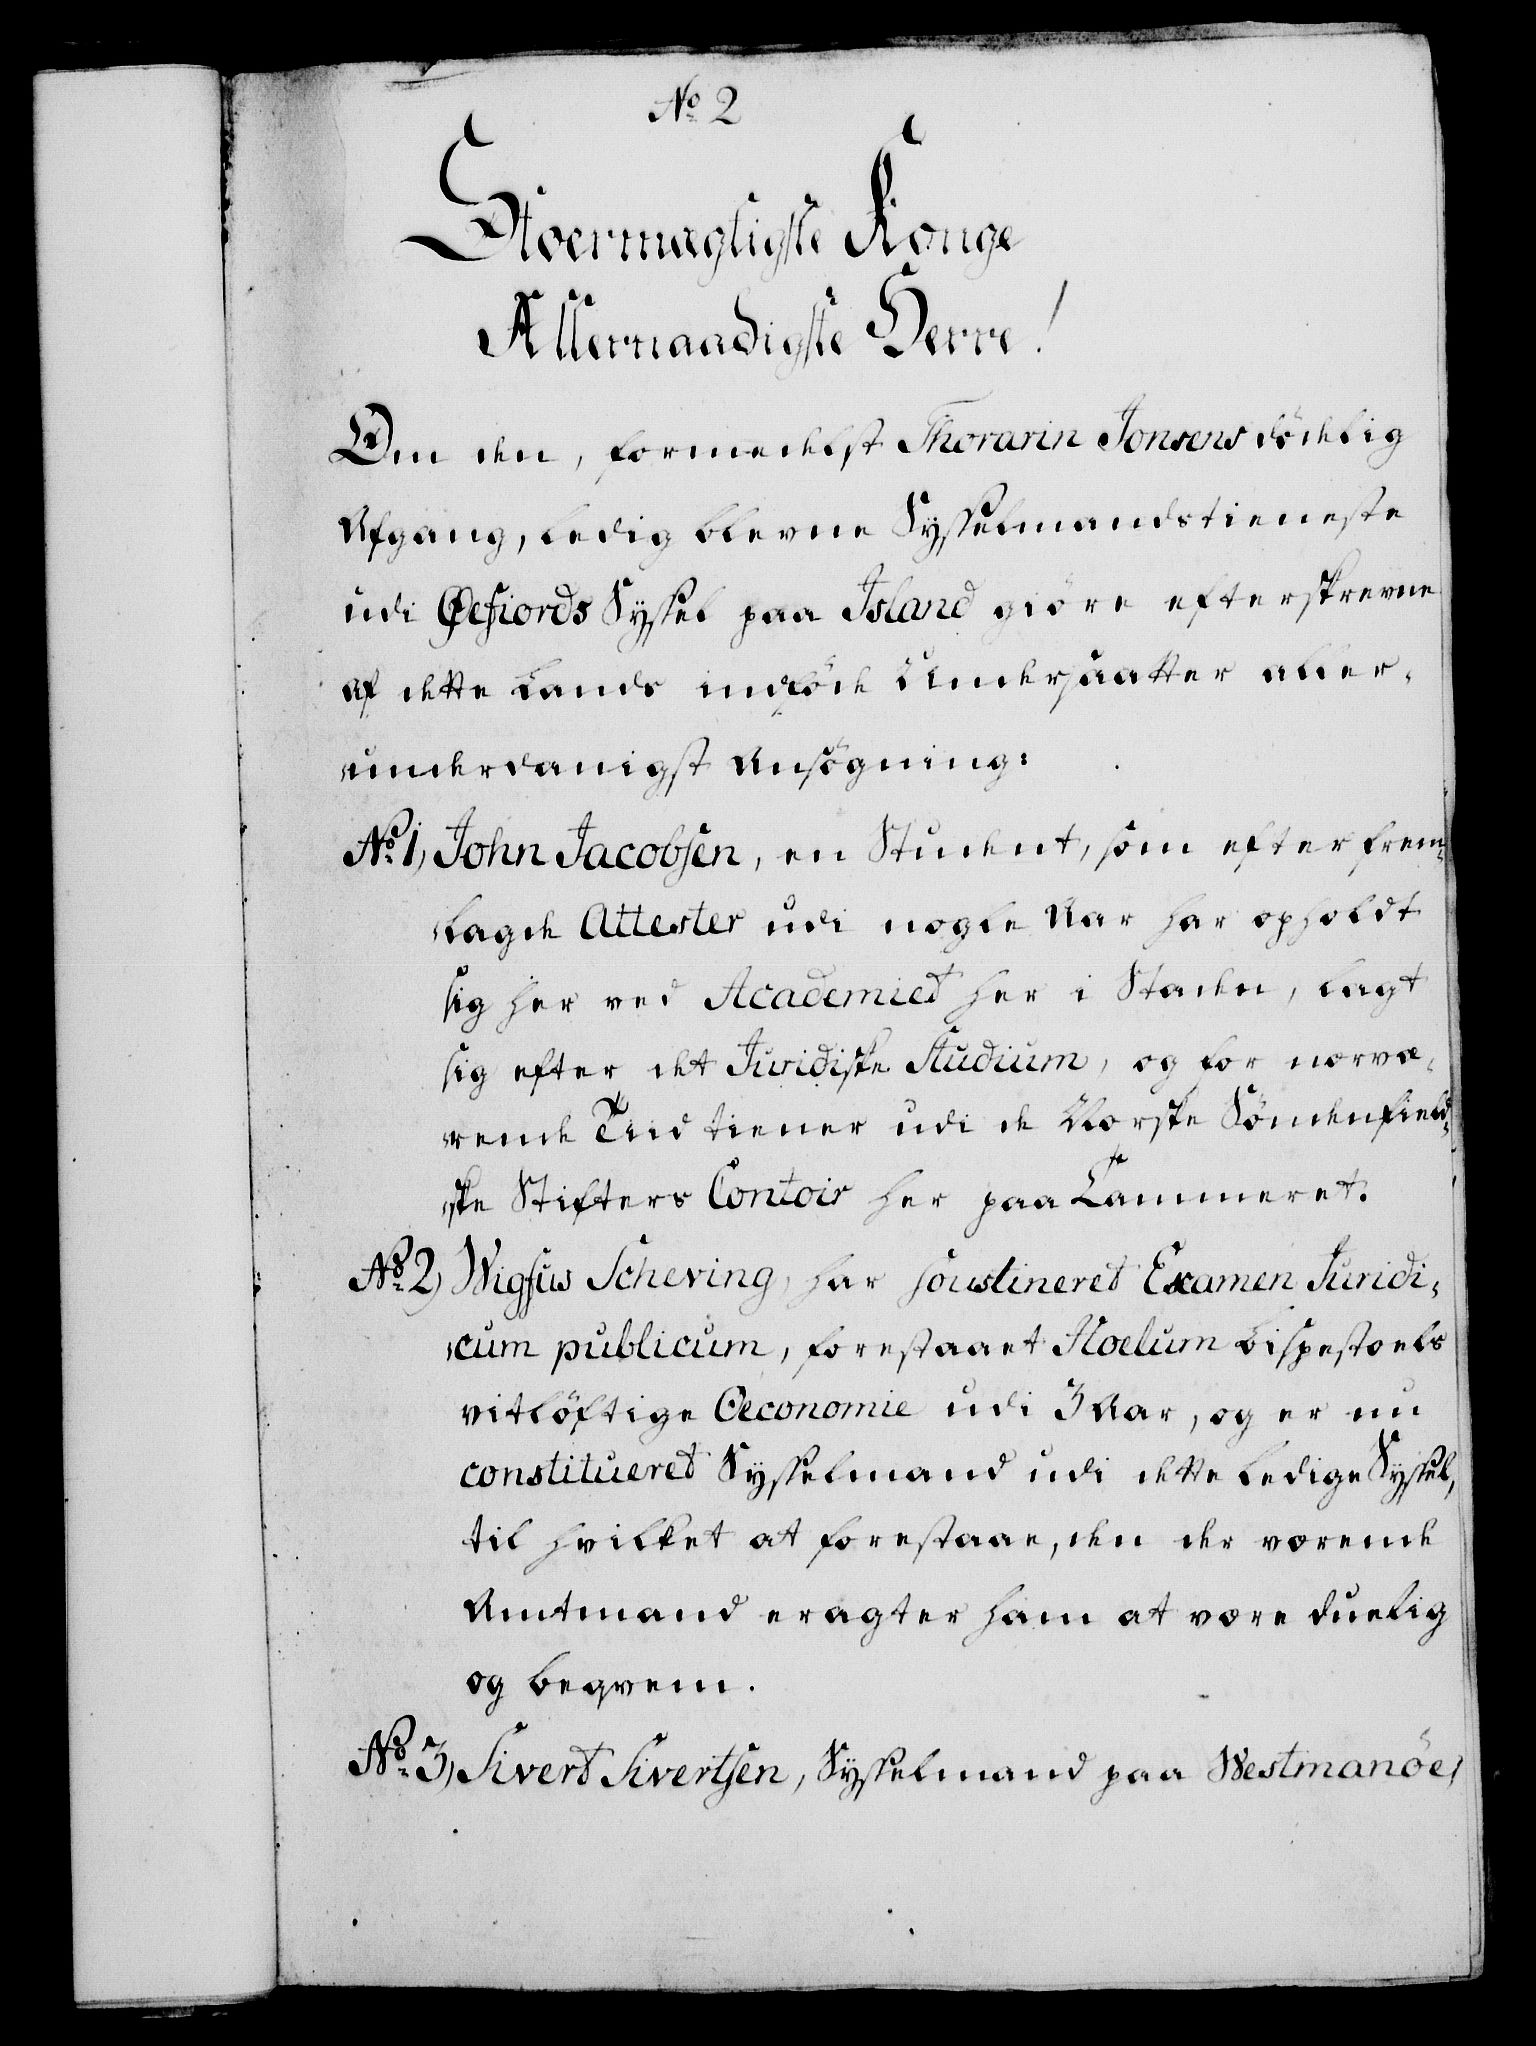 No 2
Stoermægtigste Konge
Allernaadigste Herre!
Om den, formedelst Thorarin Jonsens dödelig
Afgang, ledig blevne Sysselmandstieneste
udi Øefiords Syssel paa Island giöre efterskrevne
af dette Lands indföde Undersaatter aller-
underdanigst Ansögning:
No 1, John Jacobsen, en Student, som efter frem-
lagde Attester udi nogle Aar har opholdt
sig her ved Academiet her i Staden, lagt
sig efter det Juridiske Studium, og for nærvæ-
rende Tiid tiener udi de Norske Söndenfield-
ske Stifters Contoir her paa Cammeret.
No 2, Wigfus Scheving, har soustineret Examen Juridi-
cum publicum, forestaaet Hoelum Bispestoels
vitlöftige Oeconomie udi 3 Aar, og er nu
constitueret Sysselmand udi dette ledige Syssel,
til hvilket at forestaae, den der værende
Amtmand eragter ham at være duelig
og beqvem.
No 3, Sivert Sivertsen, Sysselmand paa Westmanöe,